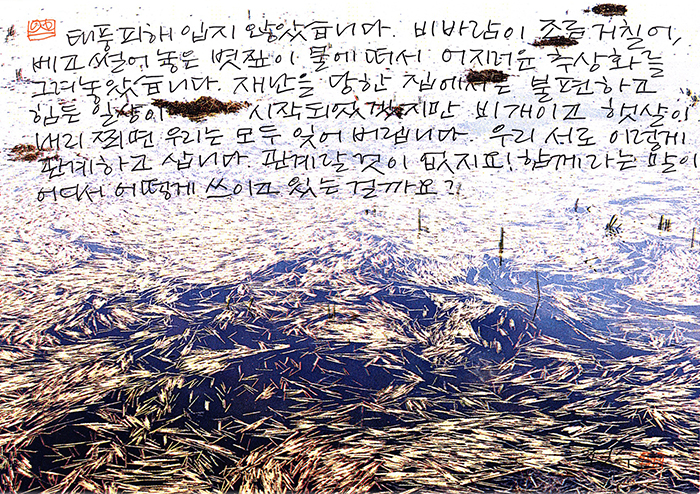 태풍피해 입지 않았습니다. 비바람이 조금 거칠어,
베고 썰어 놓은 볏짚이 물에 떠서 어지러운 추상화를
그려놓았습니다. 재난을 당한 집에서는 불편하고
힘든 일상이 시작되었겠지만 비개이고 햇살이
내리 쬐면 우리는 모두 잊어 버립니다. 우리 서로 이렇게
관계하고 삽니다. 관계랄 것이 없지요! 함께라는 말이
어디서 어떻게 쓰이고 있는 걸까요?